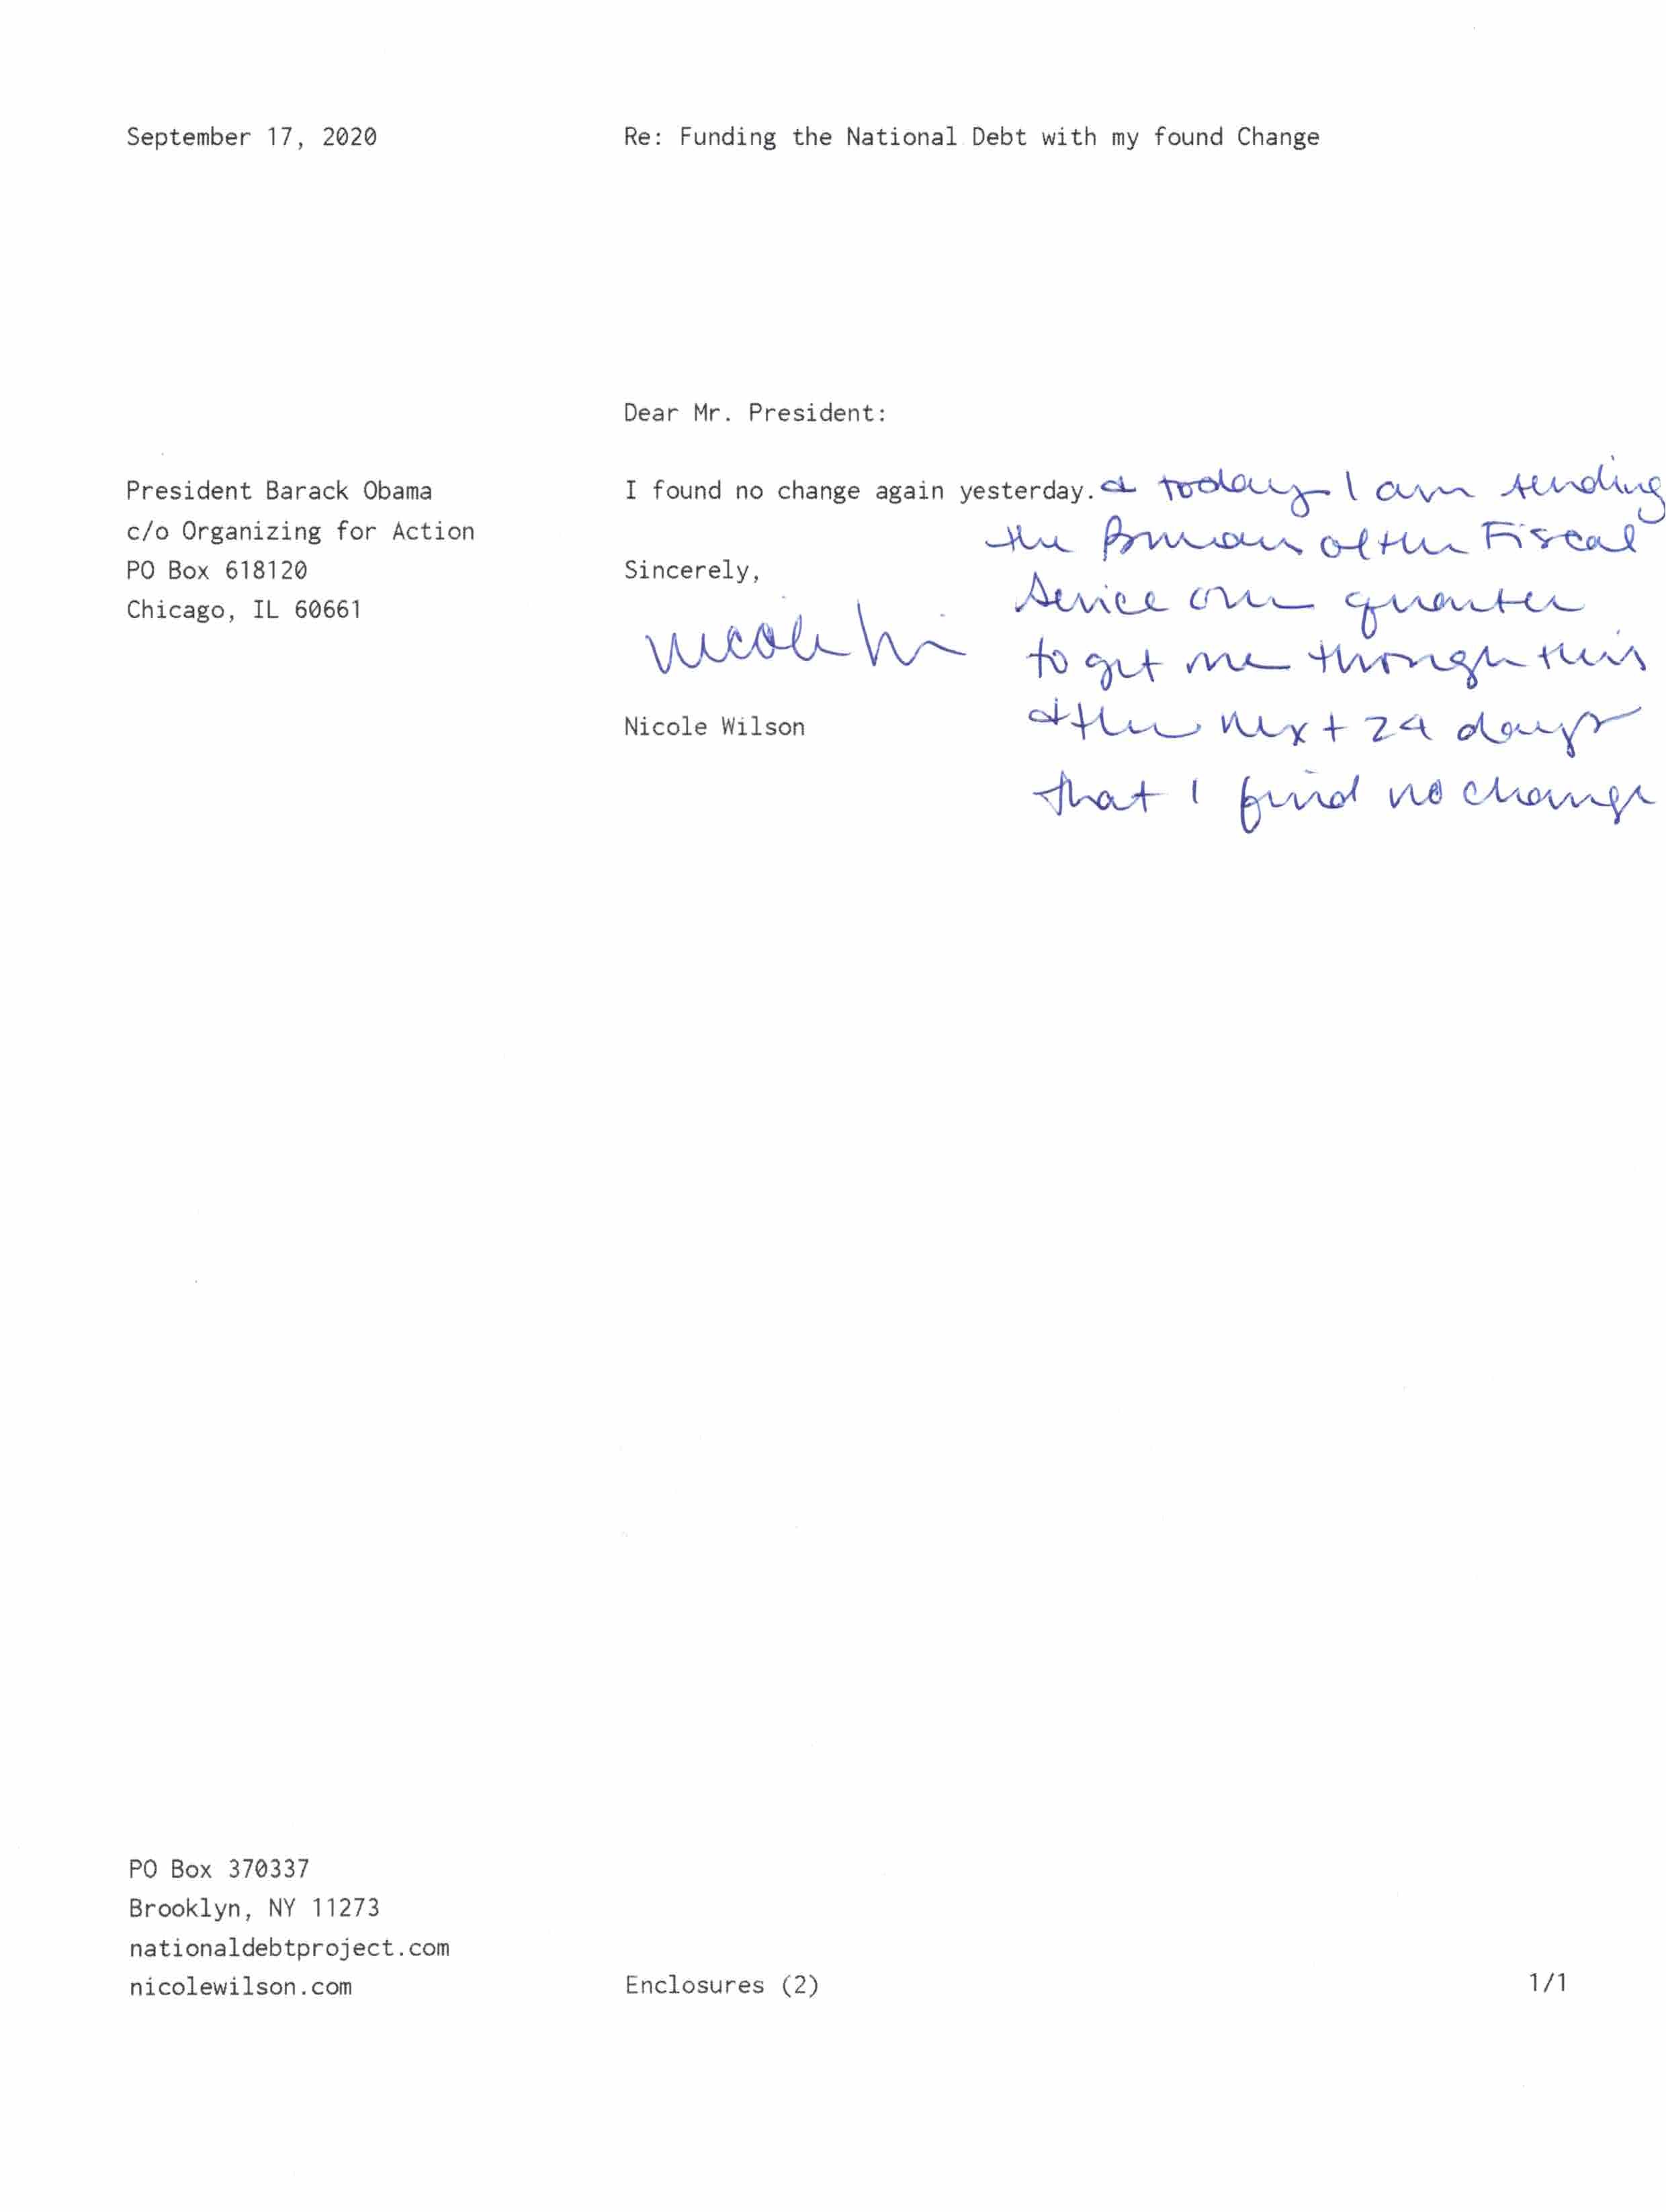 September 17, 2020
Re: Funding the National Debt with my found Change
Dear Mr. President:
President Barack Obama
c/o Organizing for Action
PO Box 618120
Chicago, IL 60661
I found no change again yesterday. & today I am sending
the Bureau of the Fiscal
Service one quarter
to get me through this
& the next 24 days
that I find no change
Sincerely,
Nicole Wi
Nicole Wilson
PO Box 370337
Brooklyn, NY 11273
nationaldebtproject.com
nicolewilson.com
Enclosures (2)
1/1